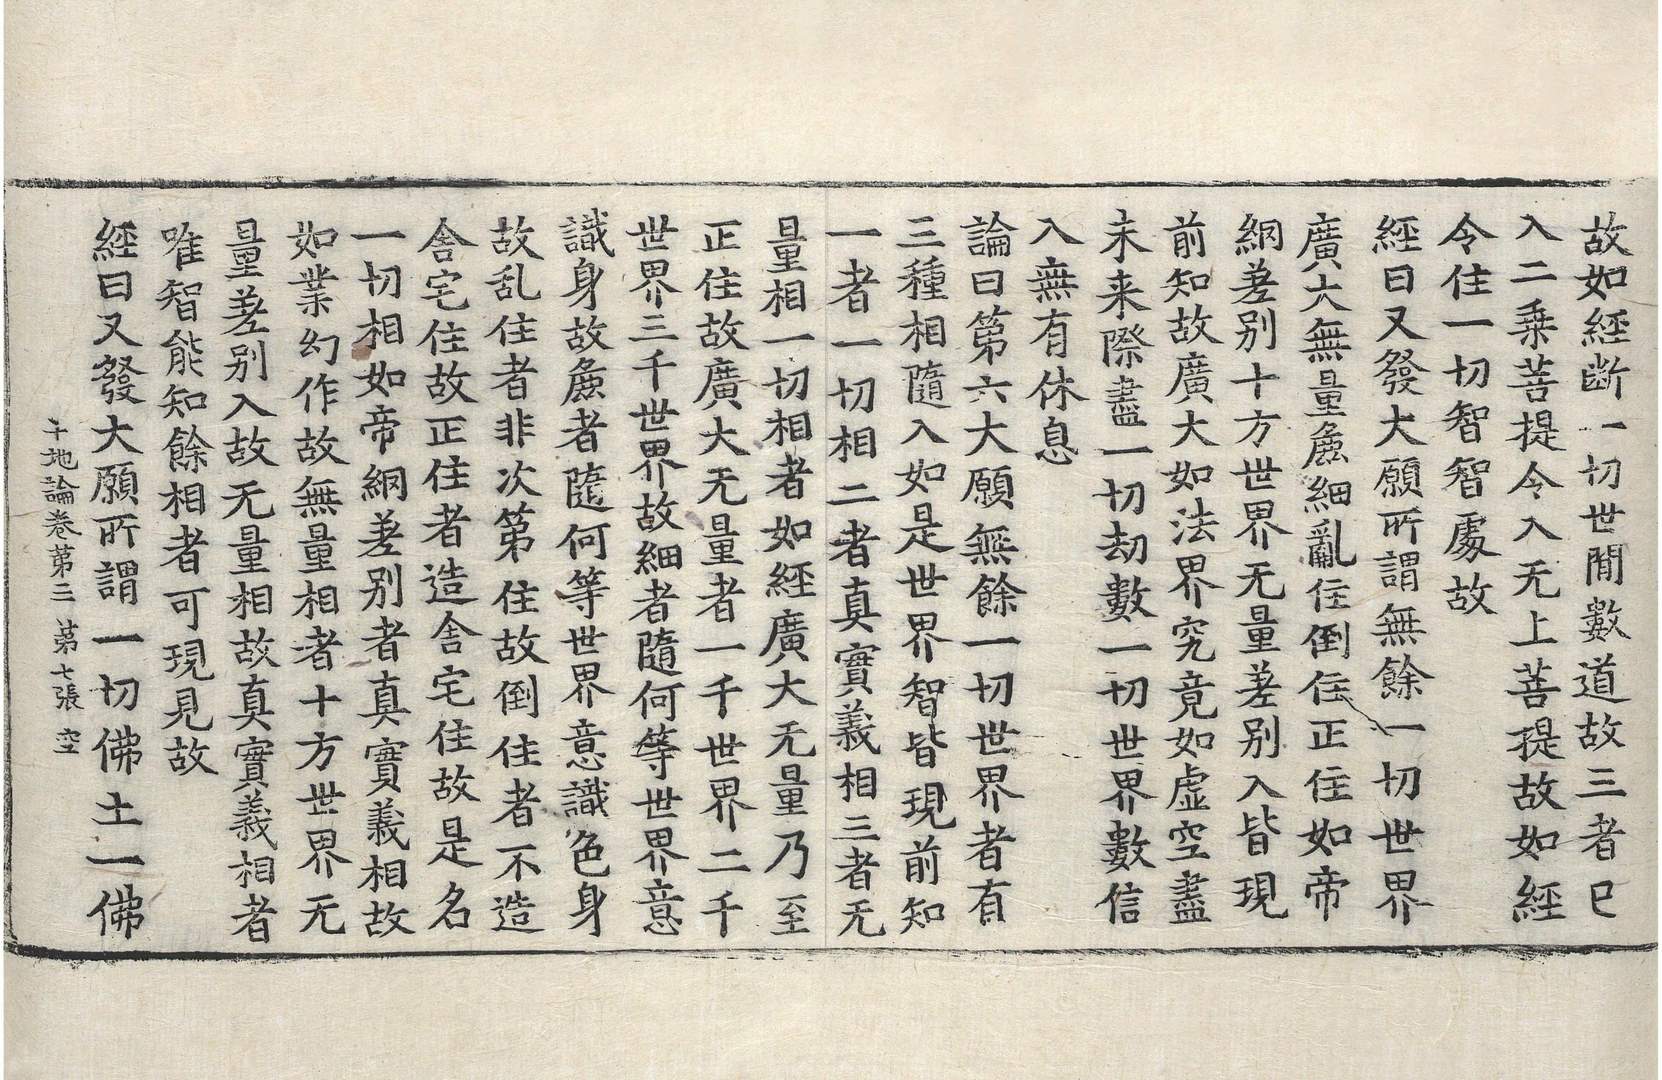 故如經断一切世間數道故三者已
入二乗菩提令入无上菩提故如經
令住一切智智處故
經曰又發大願所謂無餘一切世界
廣大無量麁細亂住倒住正住如帝
網差别十方世界无量差别入皆現
前知故廣大如法界究竟如虚空盡
未来際盡一切劫數一切世界數信
入無有休息
論曰第六大願無餘一切世界者有
三種相隨入如是世界智皆現前知
一者一切相二者真實義相三者无
量相一切相者如經廣大无量乃至
正住故廣大无量者一千世界二千
世界三千世界故細者隨何等世界意
識身故麁者隨何等世界意識色身
故乱住者非次第住故倒住者不造
舎宅住故正住者造舎宅住故是名
一切相如帝網差别者真實義相故
如業幻作故無量相者十方世界无
量差别入故无量相故真實義相者
唯智能知餘相者可現見故
十地論卷第三 第七張 空
經曰又發大願所謂一切佛土一佛